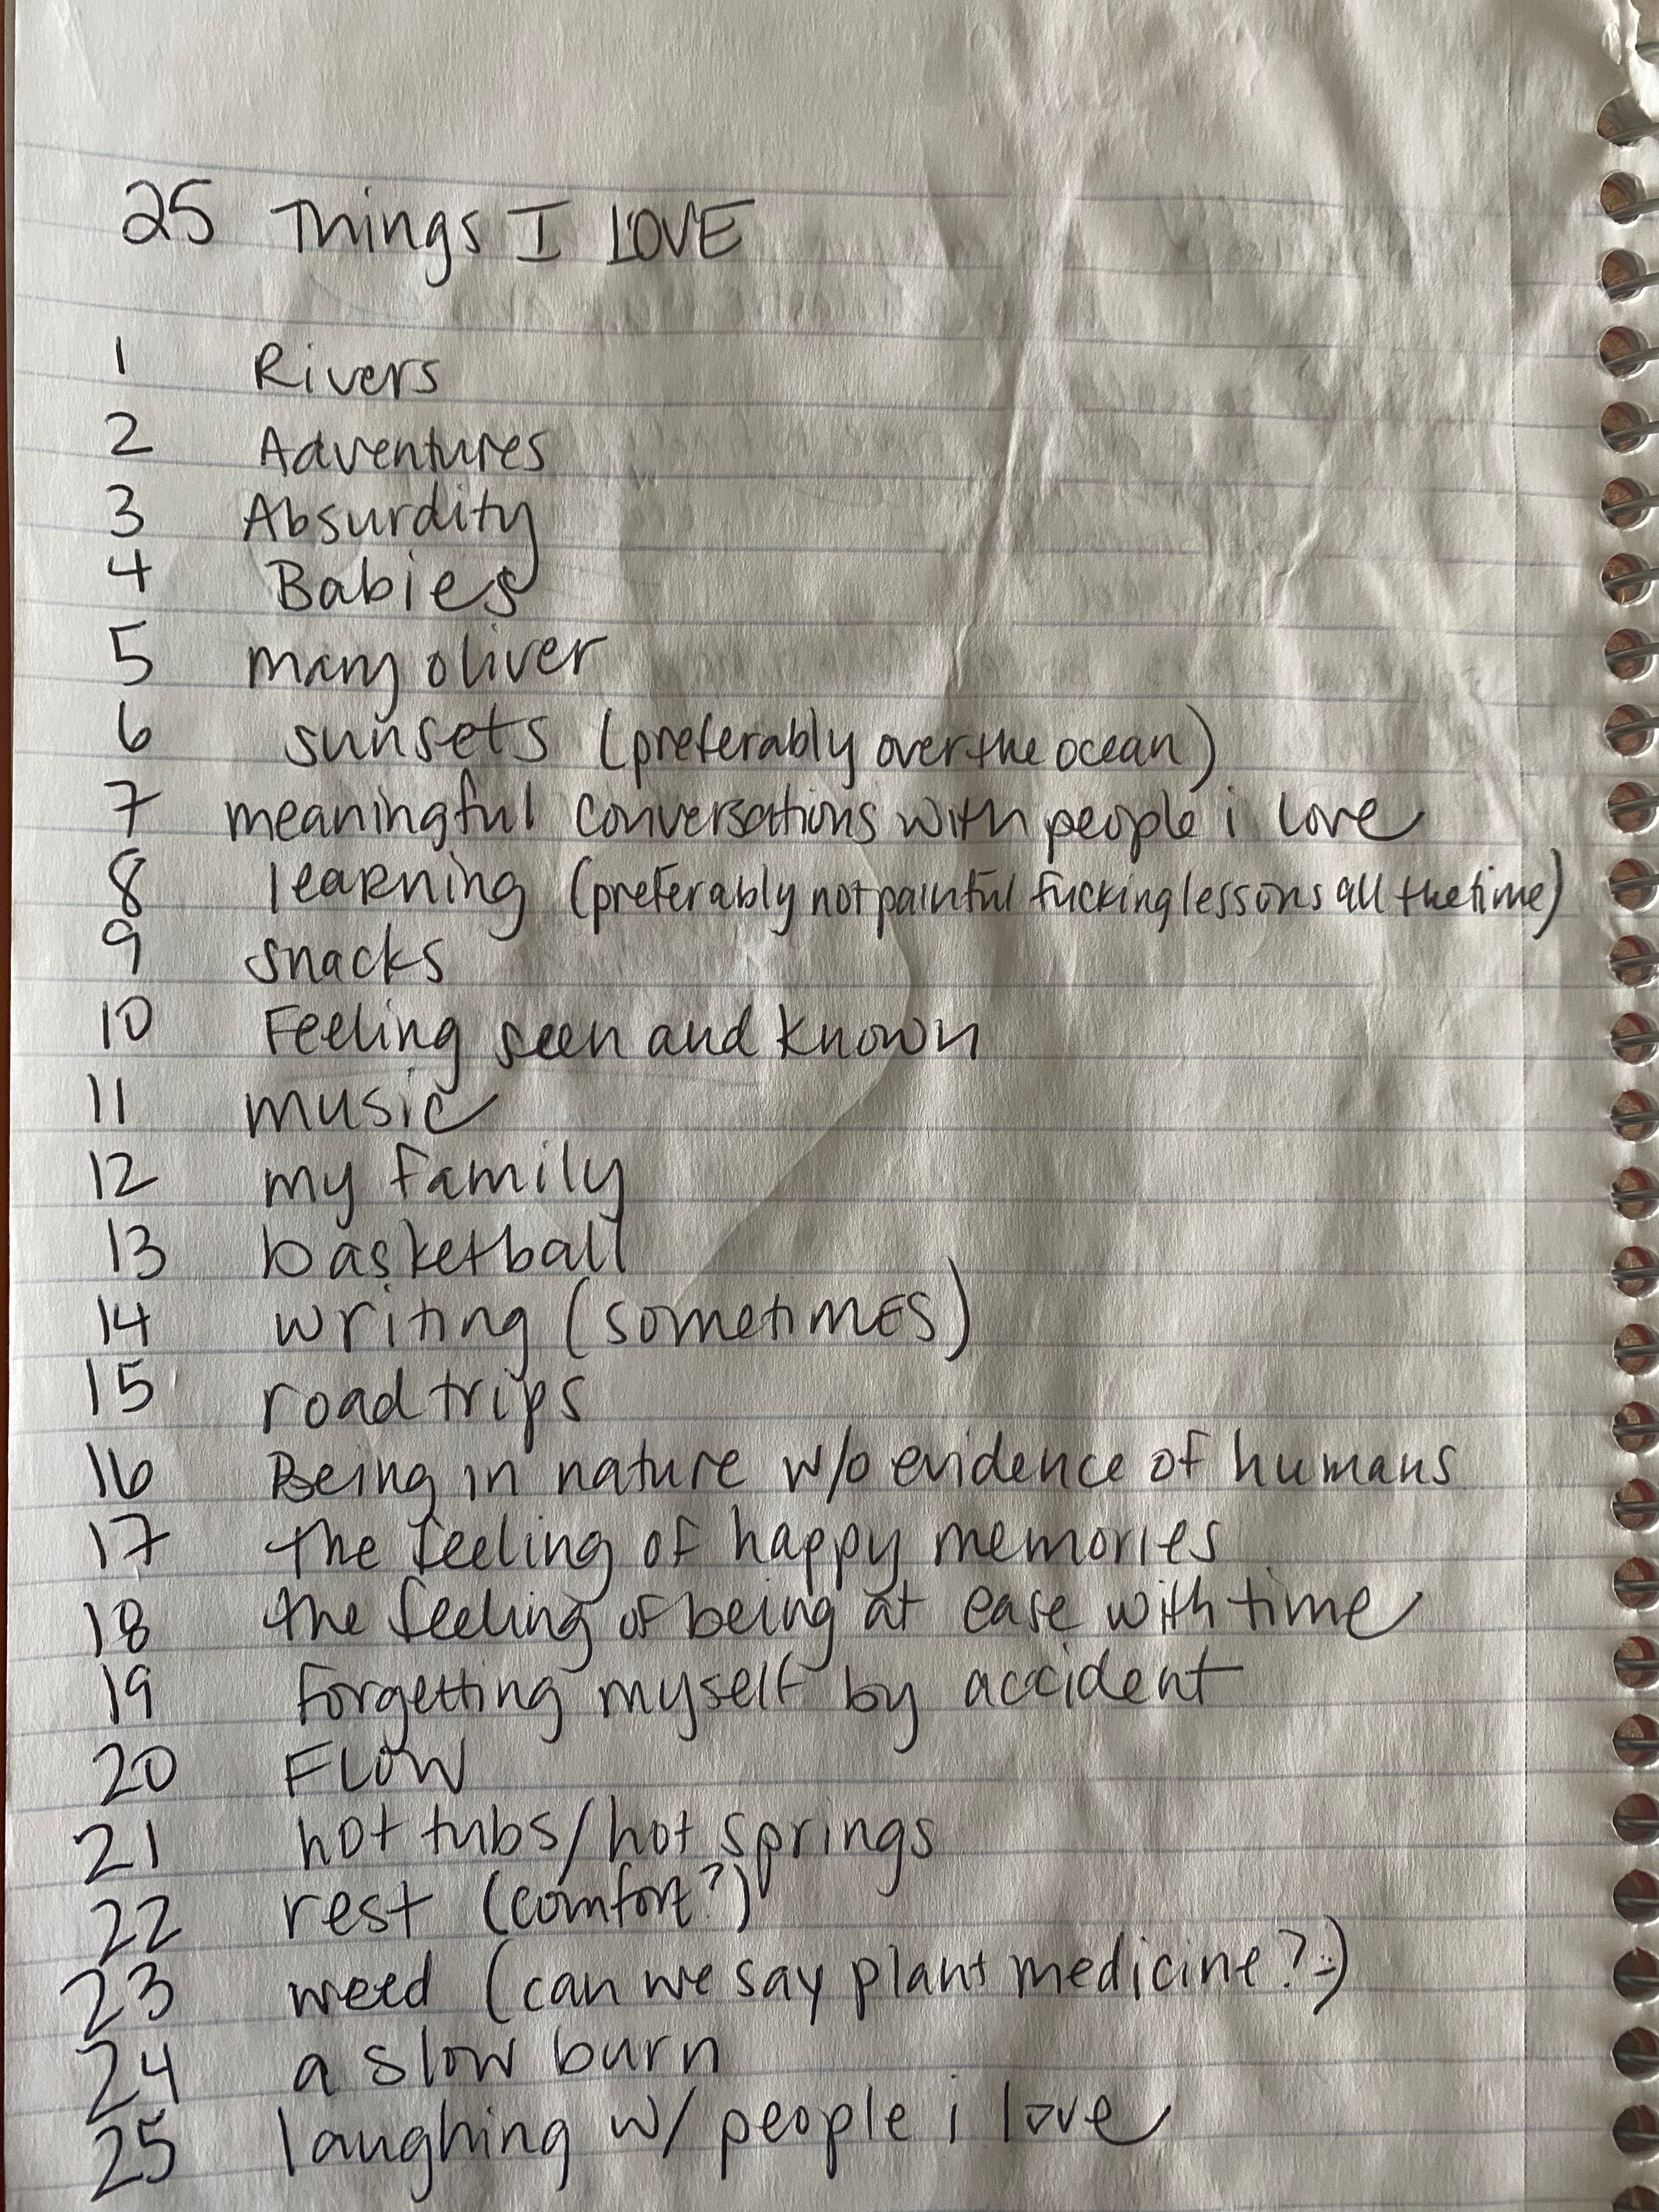 25 Things I LOVE
1 Rivers
2 Adventures
3 Absurdity
4 Babies
5 mary oliver
6 sunsets (preferably over the ocean)
7 meaningful conversations with people i love
8 learning (preferably not painful fucking lessons all the time)
9 snacks
10 Feeling seen and known
11 music
12 my family
13 basketball
14 writing (sometimes)
15 road trips
16 Being in nature w/o evidence of humans
17 the feeling of happy memories
18 the feeling of being at ease with time
19 forgetting myself by accident
20 FLOW
21 hot tubs/hot springs
22 rest (comfort?)
23 weed (can we say plant medicine? :)
24 a slow burn
25 laughing w/ people i love